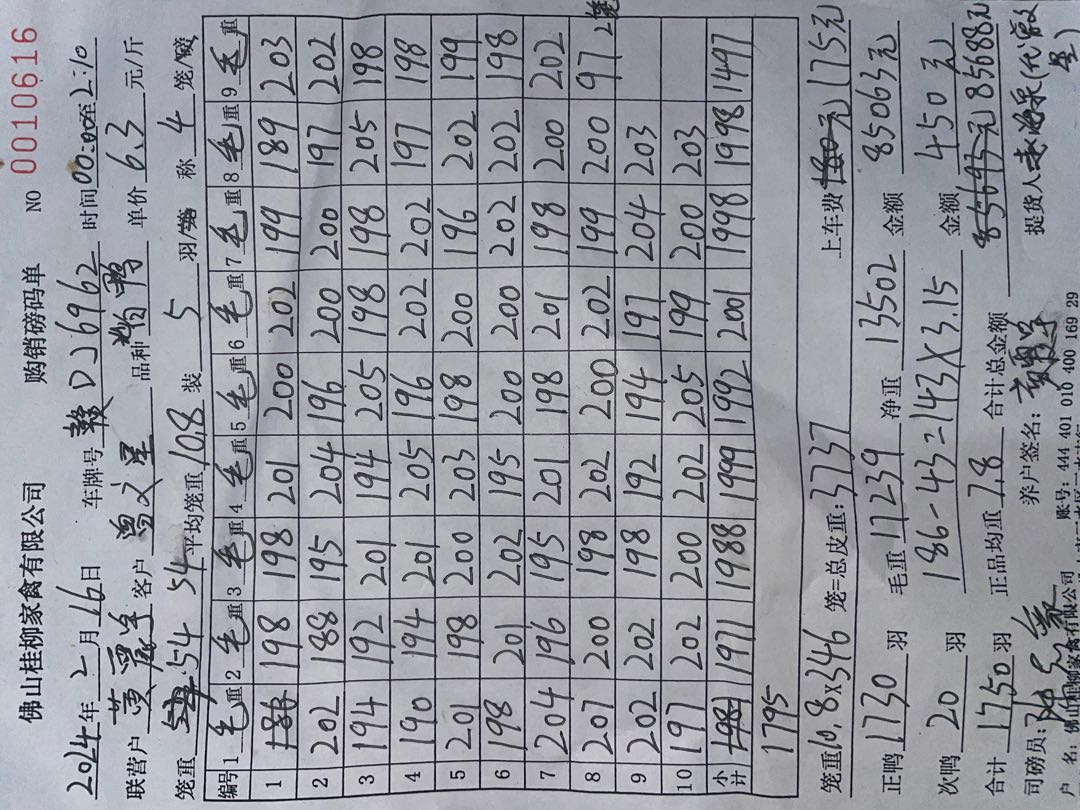 佛山桂柳家禽有限公司 购销磅码单 NO 0010616
2024年2月16日 车牌号 赣DJ6962 时间00:00至2:10
联营户 黄 客户 曾文星 品种 鸭 单价 6.3 元/斤
笼重 54 54 54 平均笼重 10.8 装 5 羽/笼 称 4 笼/磅
编号 1 毛重 2 毛重 3 毛重 4 毛重 5 毛重 6 毛重 7 毛重 8 毛重 9 毛重
1 186 198 198 201 200 202 199 189 203
2 202 188 195 204 196 200 200 197 202
3 194 192 201 194 205 198 198 205 198
4 190 194 201 205 196 202 202 197 198
5 201 198 200 203 198 200 196 202 199
6 198 201 202 195 200 200 202 202 198
7 204 196 195 201 198 201 198 200 202
8 207 200 198 202 200 202 199 200 97
9 202 202 198 192 194 197 204 203
10 197 202 200 202 205 199 200 203
小计 1981 1971 1988 1999 1992 2001 1998 1998 1497
1795
笼重10.8×346 笼=总皮重:3737 上车费 180元 175元
正鸭 1730 羽 毛重 17239 净重 13502 金额 85063元
次鸭 20 羽 186-43=143×3.15 金额 450元
合计 1750 羽 正品均重 7.8 合计总金额 85693元 85688元
司磅员: 养户签名: 提货人
户 名:佛山桂柳家禽有限公司 账号:444 401 010 400 169 29